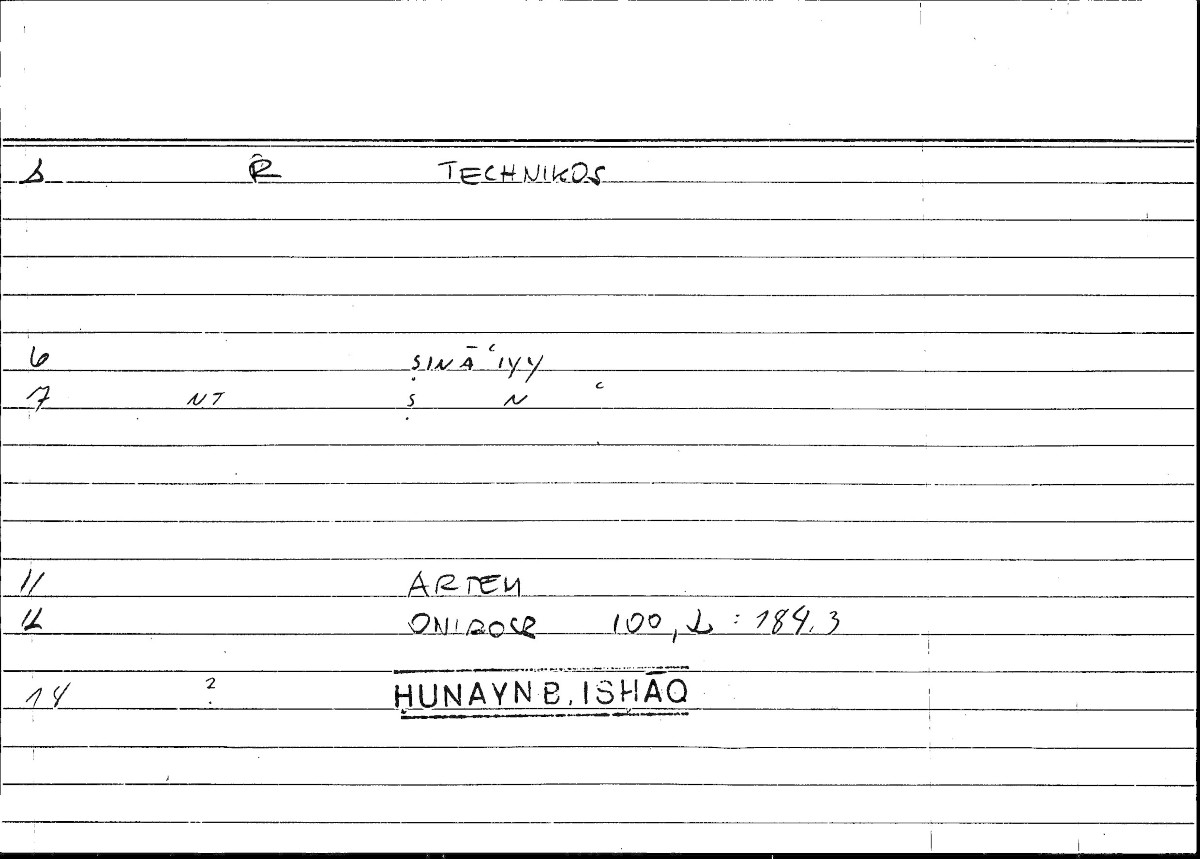 R̂ TECHNIKOS
6 ṢINĀʿIYY
7 NT Ṣ N ʿ
11 ARTEM
ONIROCR 100, : 184.3
14 ? ḤUNAYN B. ISḤĀQ